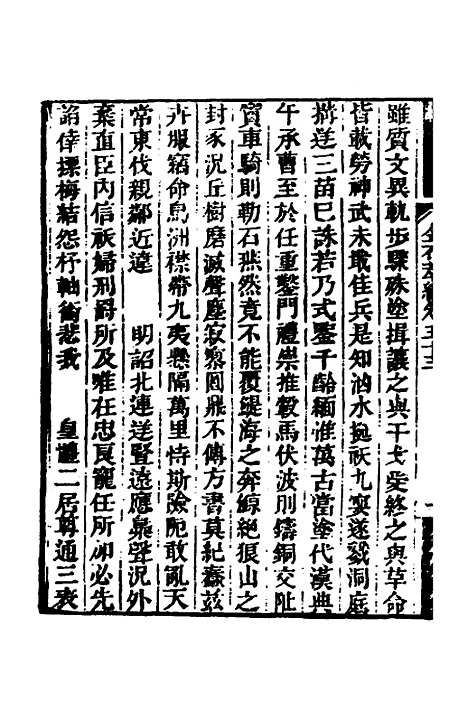 金石萃編卷五十三
雖質文異軌步驟殊塗揖讓之與干戈受終之與革命
皆載勞神武未戢佳兵是知汹水挻祅九嬰遂戮洞庭
搆逆三苗已誅若乃式鑒千齡緬惟萬古當塗代漢典
午承曹至於任重鑿門禮崇推轂馬伏波則鑄銅交阯
竇車騎則勒石燕然竟不能覆鯷海之奔鯨絕狼山之
封豕況丘樹磨滅聲塵寂寥圓鼎不傳方書莫紀蠢茲
卉服竊命鳥洲襟帶九夷懸隔萬里恃斯險阨敢亂天
常東伐親鄰近違　　明詔北連逆豎遠應梟聲況外
棄直臣內信祅婦刑罰所及唯在忠良寵任所加必先
諂倖摽梅結怨杼軸銜悲我　　皇體二居尊通三表